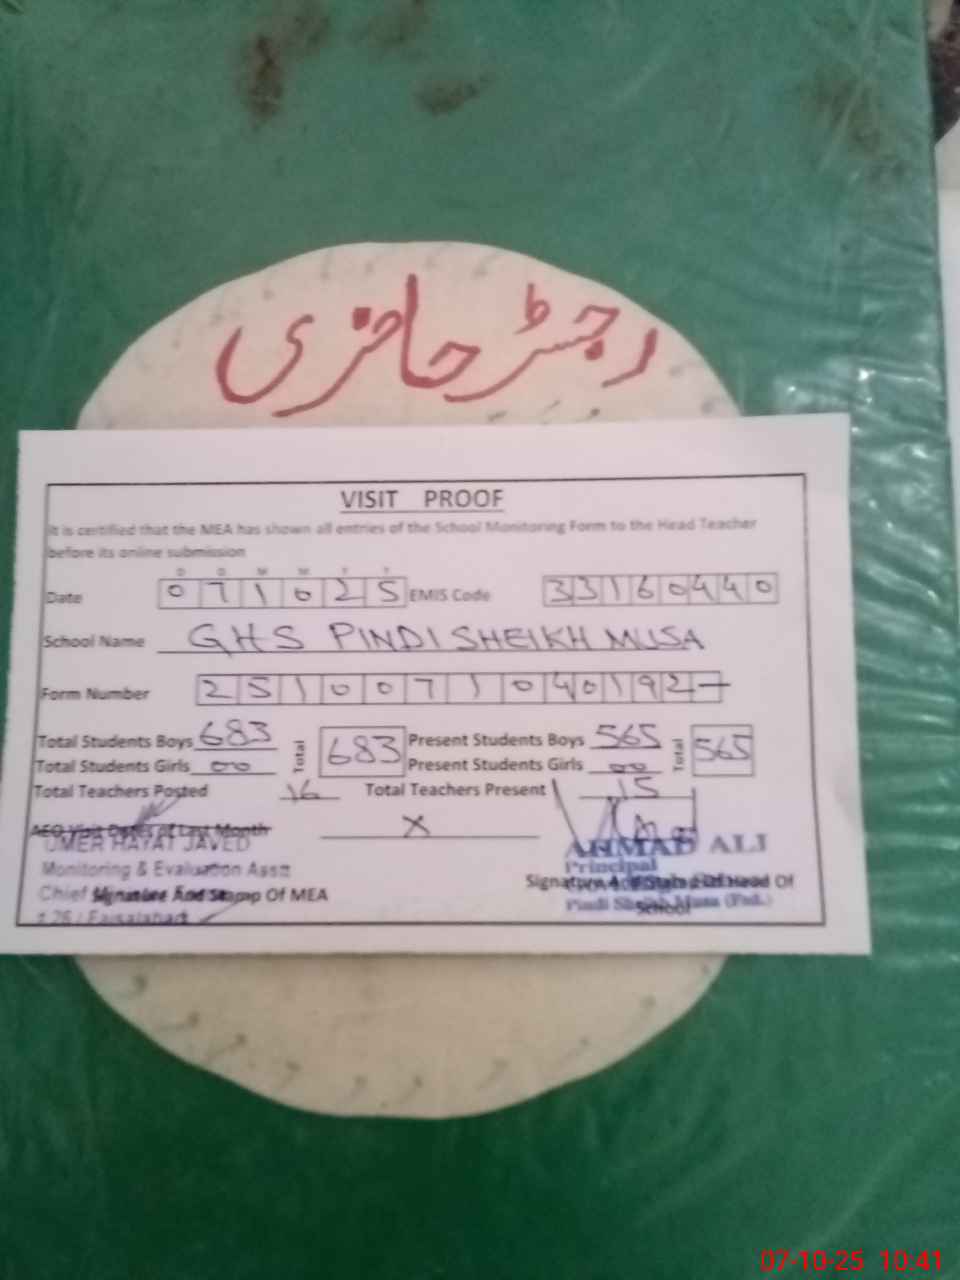 رجسٹر حاضری
VISIT PROOF
It is certified that the MEA has shown all entries of the School Monitoring Form to the Head Teacher
before its online submission
D D M M Y Y
Date 071025 EMIS Code 33160440
School Name GHS PINDI SHEIKH MUSA
Form Number 2510071040192-
Total Students Boys 683 Total 683 Present Students Boys 565 Total 565
Total Students Girls 00 Present Students Girls 00
Total Teachers Posted 16 Total Teachers Present 15
AEO Visit Dates of Last Month X
UMER HAYAT JAVED
Monitoring & Evaluation Asstt
Signature And Stamp Of MEA
Chief
AHMAD ALI
Principal
Signature And Stamp Of Head Of
School
Pindi Sheikh Musa (Fsd.)
07-10-25 10:41